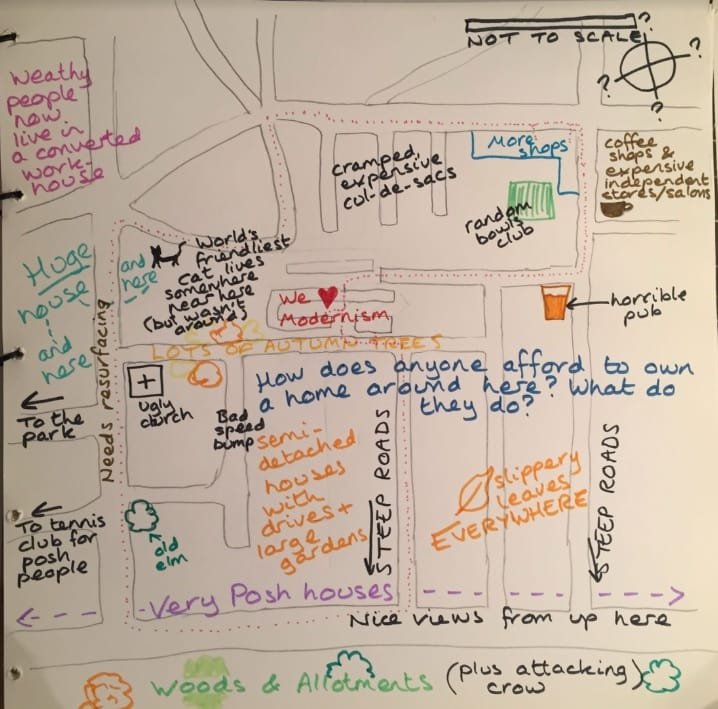 NOT TO SCALE
?
?
?
?
Weathy
people
now
live in
a converted
work-
house
cramped,
expensive
cul-de-sacs
More
shops
coffee
shops &
expensive
independent
stores/salons
random
bowls
club
Huge
house
and
here
and
here
World's
friendliest
cat lives
somewhere
near here
(but wasn't
around)
We ♥
Modernism
horrible
pub
LOTS OF AUTUMN TREES
Needs resurfacing
To the
park
ugly
church
Bad
speed
bump
How does anyone afford to own
a home around here? What do
they do?
semi-
detached
houses
with
drives +
large
gardens
STEEP ROADS
slippery
leaves
EVERYWHERE
STEEP ROADS
To tennis
club for
posh
people
old
elm
Very Posh houses
Nice views from up here
Woods & Allotments
(plus attacking
crow)